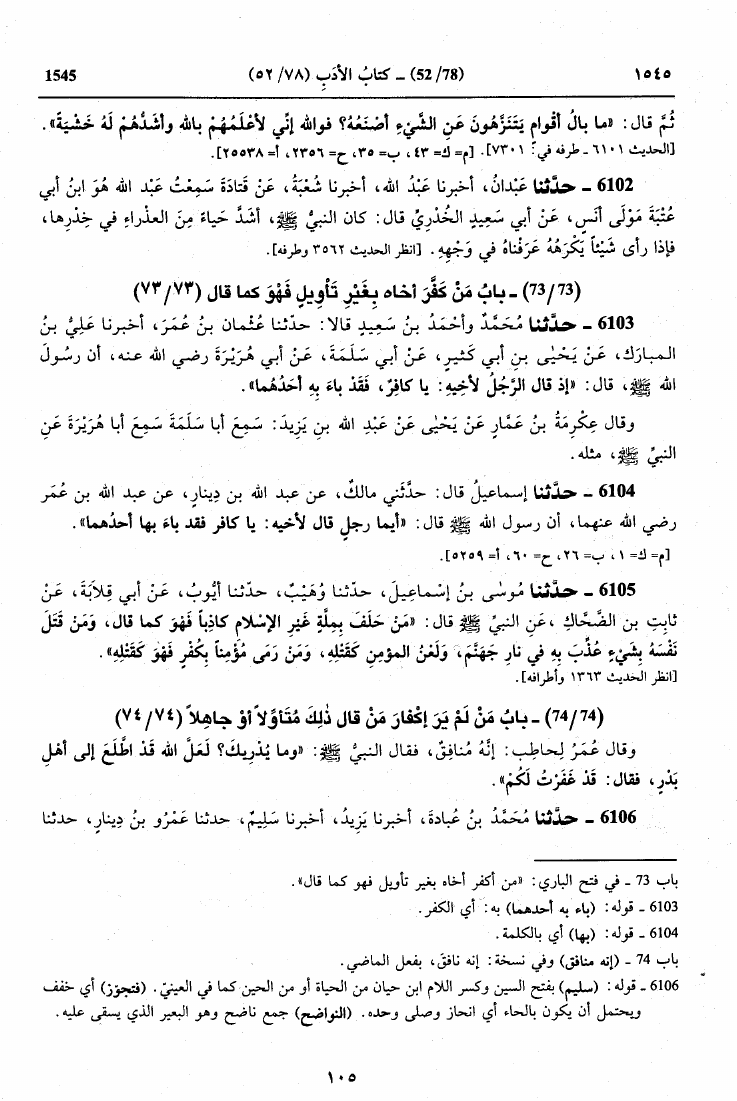 ١٥٤٥ (52/78) ــ كتابُ الأدَبِ (٥٢/٧٨) 1545
ثُمَّ قال: «ما بالُ أقْوامٍ يَتَنَزَّهُونَ عَنِ الشَّيْءِ أصْنَعُهُ؟ فوالله إنِّي لأعْلَمُهُمْ بالله وأشَدُّهُمْ لَهُ خَشْيَةً».
[الحديث ٦١٠١ ـ طرفه في: ٧٣٠١]. [م= ك= ٤٣، ب= ٣٥، ح= ٢٣٥٦، أ= ٢٥٥٣٨].
6102 ـ حدَّثنا عَبْدانُ، أخبرنا عَبْدُ الله، أخبرنا شُعْبَةُ، عَنْ قَتادَةَ سَمِعْتُ عَبْدَ الله هُوَ ابنُ أبي
عُتْبَةَ مَوْلَى أنَسٍ، عَنْ أبي سَعِيدٍ الخُدْرِيِّ قال: كان النبيُّ ﷺ، أشَدَّ حَياءً مِنَ العذْراءِ في خِدْرِها،
فإذا رأى شَيْئاً يَكْرَهُهُ عَرَفْناهُ في وَجْهِهِ. [انظر الحديث ٣٥٦٢ وطرفه].
(73/73) ـ بابُ مَنْ كَفَّرَ أخاه بِغَيْرِ تَأْوِيلٍ فَهْوَ كما قال (٧٣/٧٣)
6103 ـ حدَّثنا مُحَمَّدٌ وأحْمَدُ بنُ سَعِيدٍ قالا: حدّثنا عُثْمان بنُ عُمَرَ، أخبرنا عَلِيُّ بنُ
المبارَك، عَنْ يَحْيَى بنِ أبي كَثيرٍ، عَنْ أبي سَلَمَةَ، عَنْ أبي هُرَيْرَةَ رضي الله عنه، أن رسُولَ
الله ﷺ، قال: «إذ قال الرَّجُلُ لأخِيهِ: يا كافِرُ، فَقَدْ باءَ بِهِ أحَدُهُما».
وقال عِكْرِمَةُ بنُ عَمَّارٍ عَنْ يَحْيَى عَنْ عَبْدِ الله بنِ يَزِيدَ: سَمِعَ أبا سَلَمَةَ سَمِعَ أبا هُرَيْرَةَ عَنِ
النبيِّ ﷺ، مثله.
6104 ـ حدَّثنا إسماعيلُ قال: حدَّثَني مالكٌ، عن عبد الله بن دِينارٍ، عن عبد الله بن عُمَر
رضي الله عنهما، أن رسول الله ﷺ قال: «أيما رجلٍ قال لأخيه: يا كافر فقد باءَ بها أحدُهما».
[م= ك= ١، ب= ٢٦، ح= ٦٠، أ= ٥٢٥٩].
6105 ـ حدَّثنا مُوسَى بنُ إسْماعِيلَ، حدّثنا وُهَيْبٌ، حدّثنا أيُّوبُ، عَنْ أبي قِلابَةَ، عَنْ
ثابِتِ بن الضَّحَّاكِ، عَنِ النبيِّ ﷺ قال: «مَنْ حَلَفَ بِمِلَّةٍ غَيرِ الإسْلامِ كاذِباً فَهْوَ كما قال، وَمَنْ قَتَلَ
نَفْسَهُ بِشَيْءٍ عُذِّبَ بِهِ في نارِ جَهَنَّمَ، وَلَعْنُ المؤمِنِ كَقَتْلِهِ، وَمَنْ رَمَى مُؤْمِناً بِكُفْرٍ فَهْوَ كَقَتْلِهِ».
[انظر الحديث ١٣٦٣ وأطرافه].
(74/74) ـ بابُ مَنْ لَمْ يَرَ إكْفارَ مَنْ قال ذٰلِكَ مُتَأوِّلاً أوْ جاهِلاً (٧٤/٧٤)
وقال عُمَرُ لِحاطِبٍ: إنَّهُ مُنافِقٌ، فقال النبيُّ ﷺ: «وما يُدْرِيكَ؟ لَعَلَّ الله قَدْ اطَّلَعَ إلى أهْلِ
بَدْرٍ، فقال: قَدْ غَفَرْتُ لَكُمْ».
6106 ـ حدَّثنا مُحَمَّدُ بنُ عُبادةَ، أخبرنا يَزِيدُ، أخبرنا سَلِيمٌ، حدثنا عَمْرُو بنُ دِينارٍ، حدثنا
باب 73 ـ في فتح الباري: «من أكفر أخاه بغير تأويل فهو كما قال».
6103 ـ قوله: (باء به أحدهما) به: أي الكفر.
6104 ـ قوله: (بها) أي بالكلمة.
باب 74 ـ (إنه منافق) وفي نسخة: إنه نافق، بفعل الماضي.
6106 ـ قوله: (سليم) بفتح السين وكسر اللام ابن حيان من الحياة أو من الحين كما في العيني. (فتجوّز) أي خفف
ويحتمل أن يكون بالحاء أي انحاز وصلى وحده. (النواضح) جمع ناضح وهو البعير الذي يسقى عليه.
١٠٥